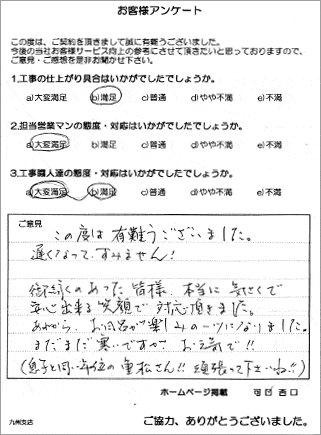 お客様アンケート
この度は、ご契約を頂きまして誠に有難うございました。
今後の当社お客様サービス向上の参考にさせて頂きたいと思っておりますので、
ご意見・ご感想を是非お聞かせ下さい。
1.工事の仕上がり具合はいかがでしたでしょうか。
a)大変満足 b)満足 c)普通 d)やや不満 e)不満
2.担当営業マンの態度・対応はいかがでしたでしょうか。
a)大変満足 b)満足 c)普通 d)やや不満 e)不満
3.工事職人達の態度・対応はいかがでしたでしょうか。
a)大変満足 b)満足 c)普通 d)やや不満 e)不満
ご意見
この度は有難うございました。
遅くなって、すみません!
のあった皆様、本当に気さくで
安心出来る笑顔で対応頂きました。
お風呂が楽しみの一つになりました。
まだまだ寒いですが、お元気で!!
(息子と同い年位の重松さん!!頑張って下さいね!!)
ホームページ掲載 可 否
九州支店
ご協力、ありがとうございました。